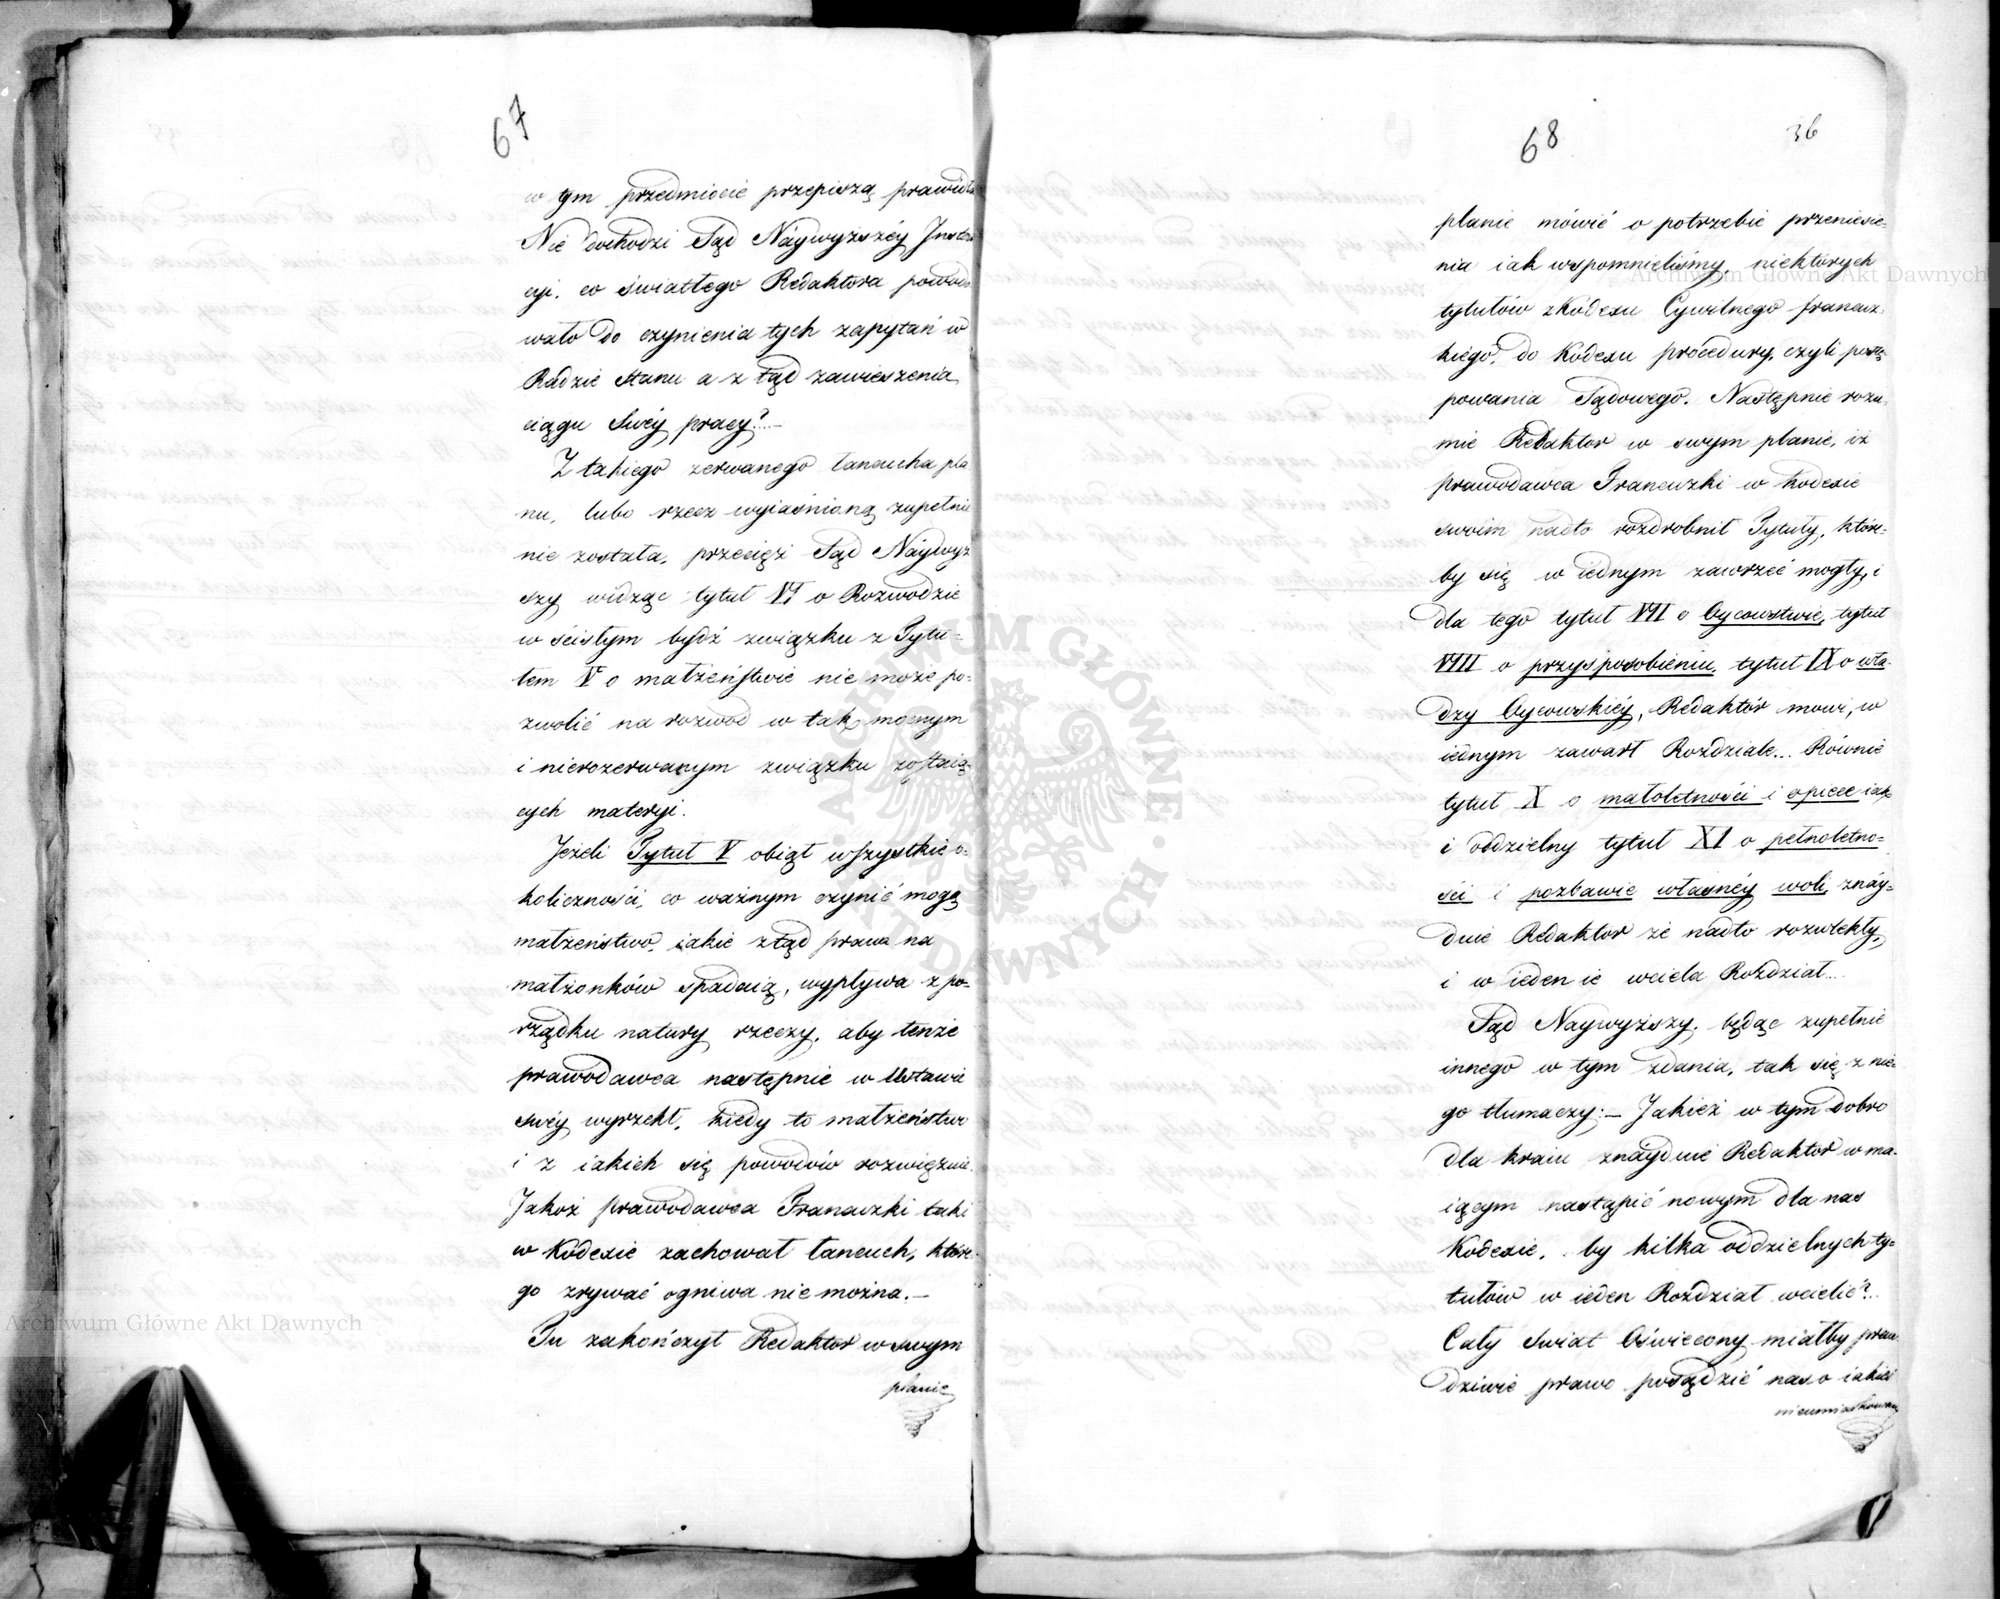 67
w tym przedmiocie przepiszą prawidła
Nie dochodzi Sąd Náywyższéy Instan
cyi, co światłego Redaktora powodo
wało do czynienia tych zapytań w
Radzie Stanu a z tąd zawieszenia
ciągu Swéy pracy?...
Z takiego zerwanego łancucha pla
nu, lubo rzecz wyiaśnioną zupełnie
nie została, przecięż Sąd Náywyż
szy widząc tytuł VI o Rozwodzie
w ścisłym bydź związku z Tytu=
łem V o małżeństwie nie może po=
zwolić na rozwod w tak mocnym
i nierozerwanym związku zostaią=
cych materyi.
Jeżeli Tytuł V obiął wszystkie o=
koliczności, co ważnym czynić mogą
małżeństwo, iakie ztąd prawa na
małżonków spadaią, wypływa z po=
rządku natury rzeczy, aby tenże
prawodawca następnie w Ustawie
swéy wyrzekł, kiedy to małżeństwo
i z iakich się powodów rozwiązuie.
Jakoż prawodawca Francuzki taki
w Kodexie zachował łancuch, które=
go zrywać ogniwa nie można.—
Tu zakończył Redaktor w swym
planie
68
36
planie mówić o potrzebie przeniesie=
nia iak wspomnieliśmy, niektórych
tytułów z Kodexu Cywilnego francuz=
kiego, do Kodexu procedury, czyli postę
powania Sądowego. Następnie rozu=
mie Redaktor w swym planie, iż
prawodawca Francuzki w Kodexie
swoim nadto rozdrobnił Tytuły, które=
by się w iednym zawrzeć mogły, i
dla tego tytuł VII o Oycowstwie, tytuł
VIII o przysposobieniu, tytuł IX o wła=
dzy Oycowskiéy, Redaktór mowi, w
iednym zawarł Rozdziale... Równie
tytuł X o małoletności i opiece iak
i oddzielny tytuł XI o pełnoletno=
ści i pozbawie własnéy woli, znáy=
duie Redaktor że nadto rozwlekły,
i w ieden ie wciela Rozdział...
Sąd Naywyższy, będąc zupełnie
innego w tym zdania, tak się z nie=
go tłumaczy:— Jakież w tym dobro
dla kraiu znayduie Redaktor w ma=
iącym nastąpić nowym dla nas
Kodexie, by kilka oddzielnych ty=
tułów w ieden Rozdział wcielić?..
Cały świat Oświecony miałby praw
dziwie prawo posądzić nas o iakieś
nieumiarkowan
Archiwum Główne Akt Dawnych
Archiwum Główne Akt Dawnych
ARCHIWUM GŁÓWNE AKT DAWNYCH